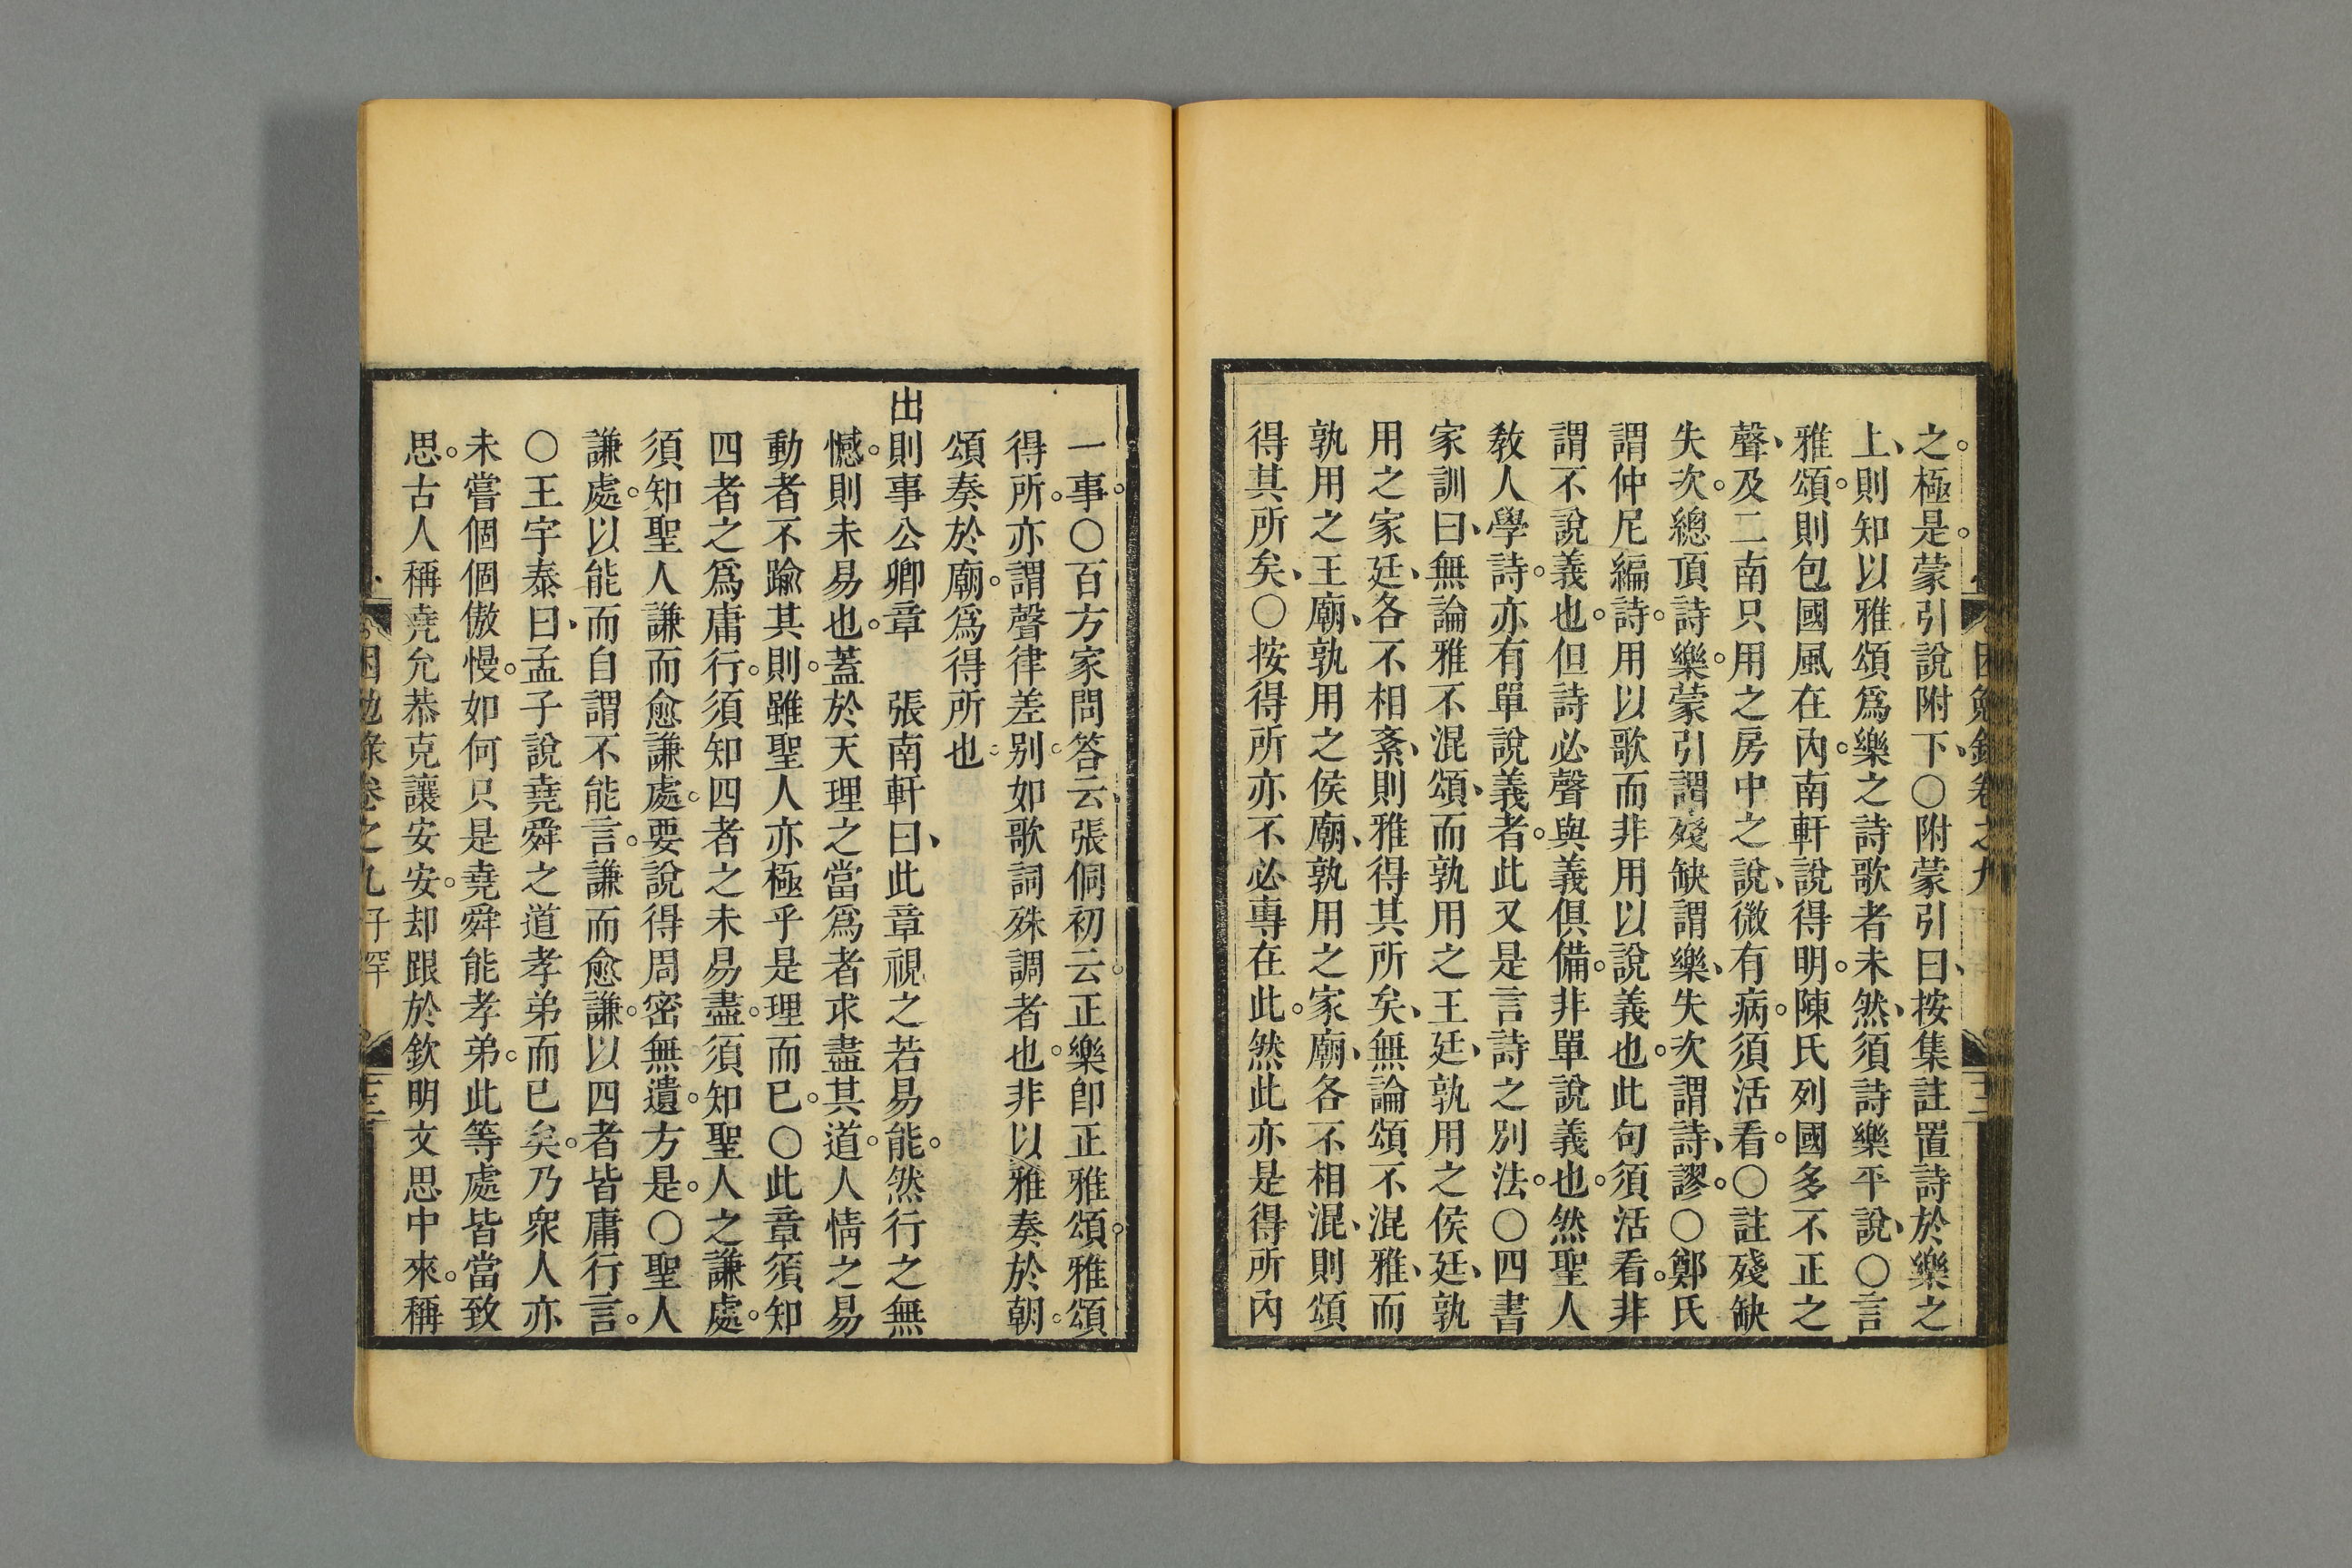 之。極是。蒙引說附下、○附蒙引曰、按集註置詩於樂之
上、則知以雅頌爲樂之詩歌者未然、須詩樂平說、○言
雅頌。則包國風在內。南軒說得明。陳氏列國多不正之
聲、及二南只用之房中之說、微有病。須活看。○註殘缺
失次。總頂詩樂。蒙引謂殘缺謂樂、失次謂詩、謬。○鄭氏
謂仲尼編詩。用以歌而非用以說義也。此句須活看。非
謂不說義也。但詩必聲與義俱備。非單說義也。然聖人
敎人學詩。亦有單說義者。此又是言詩之別法。○四書
家訓曰、無論雅不混頌、而孰用之王廷、孰用之侯廷、孰
用之家廷、各不相紊、則雅得其所矣、無論頌不混雅、而
孰用之王廟、孰用之侯廟、孰用之家廟、各不相混、則頌
得其所矣、○按得所亦不必專在此。然此亦是得所內
困勉錄卷之九
一事。○百方家問答云張侗初云正樂卽正雅頌。雅頌
得所。亦謂聲律差別。如歌詞殊調者也。非以雅奏於朝。
頌奏於廟。爲得所也。
出則事公卿章　張南軒曰、此章視之若易能。然行之無
憾。則未易也。蓋於天理之當爲者求盡其道。人情之易
動者不踰其則。雖聖人亦極乎是理而已。○此章須知
四者之爲庸行。須知四者之未易盡。須知聖人之謙處。
須知聖人謙而愈謙處。要說得周密無遺。方是。○聖人
謙處。以能而自謂不能言。謙而愈謙。以四者皆庸行言。
○王宇泰曰、孟子說堯舜之道孝弟而已矣。乃衆人亦
未嘗個個傲慢。如何只是堯舜能孝弟。此等處皆當致
思。古人稱堯允恭克讓安安。却跟於欽明文思中來。稱
困勉錄卷之九 子罕